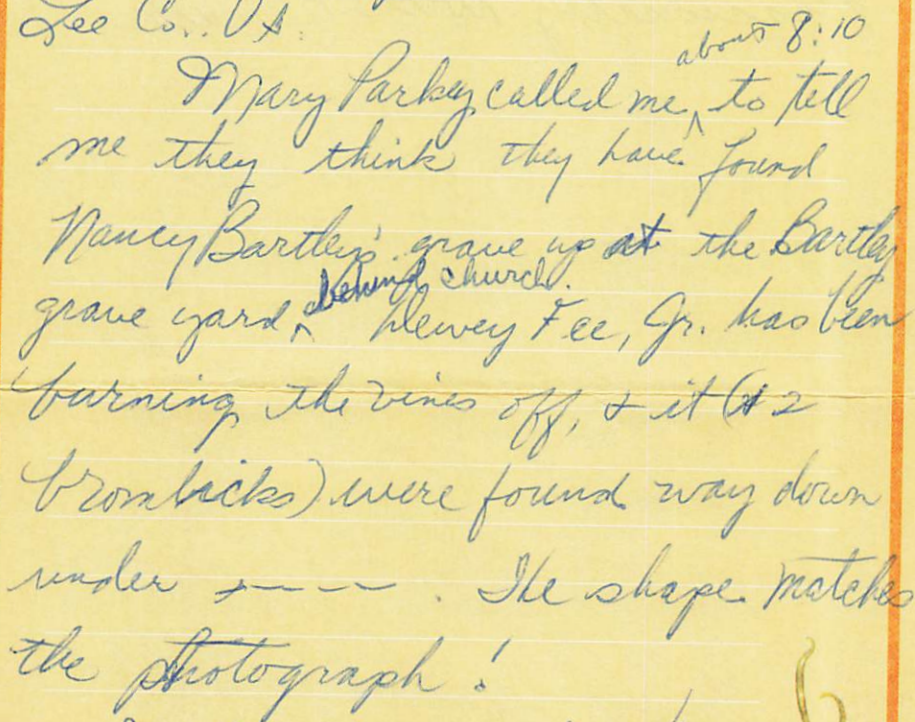 Lee Co., Va.
about 8:10
Mary Parkey called me ^ to tell
me they think they have found
Nancy Bartley's grave up at the Bartley
behind church.
grave yard ^ Dewey Fee, Jr. has been
burning the vines off, & it (& 2
brombicks) were found way down
under ----. The shape matches
the photograph!